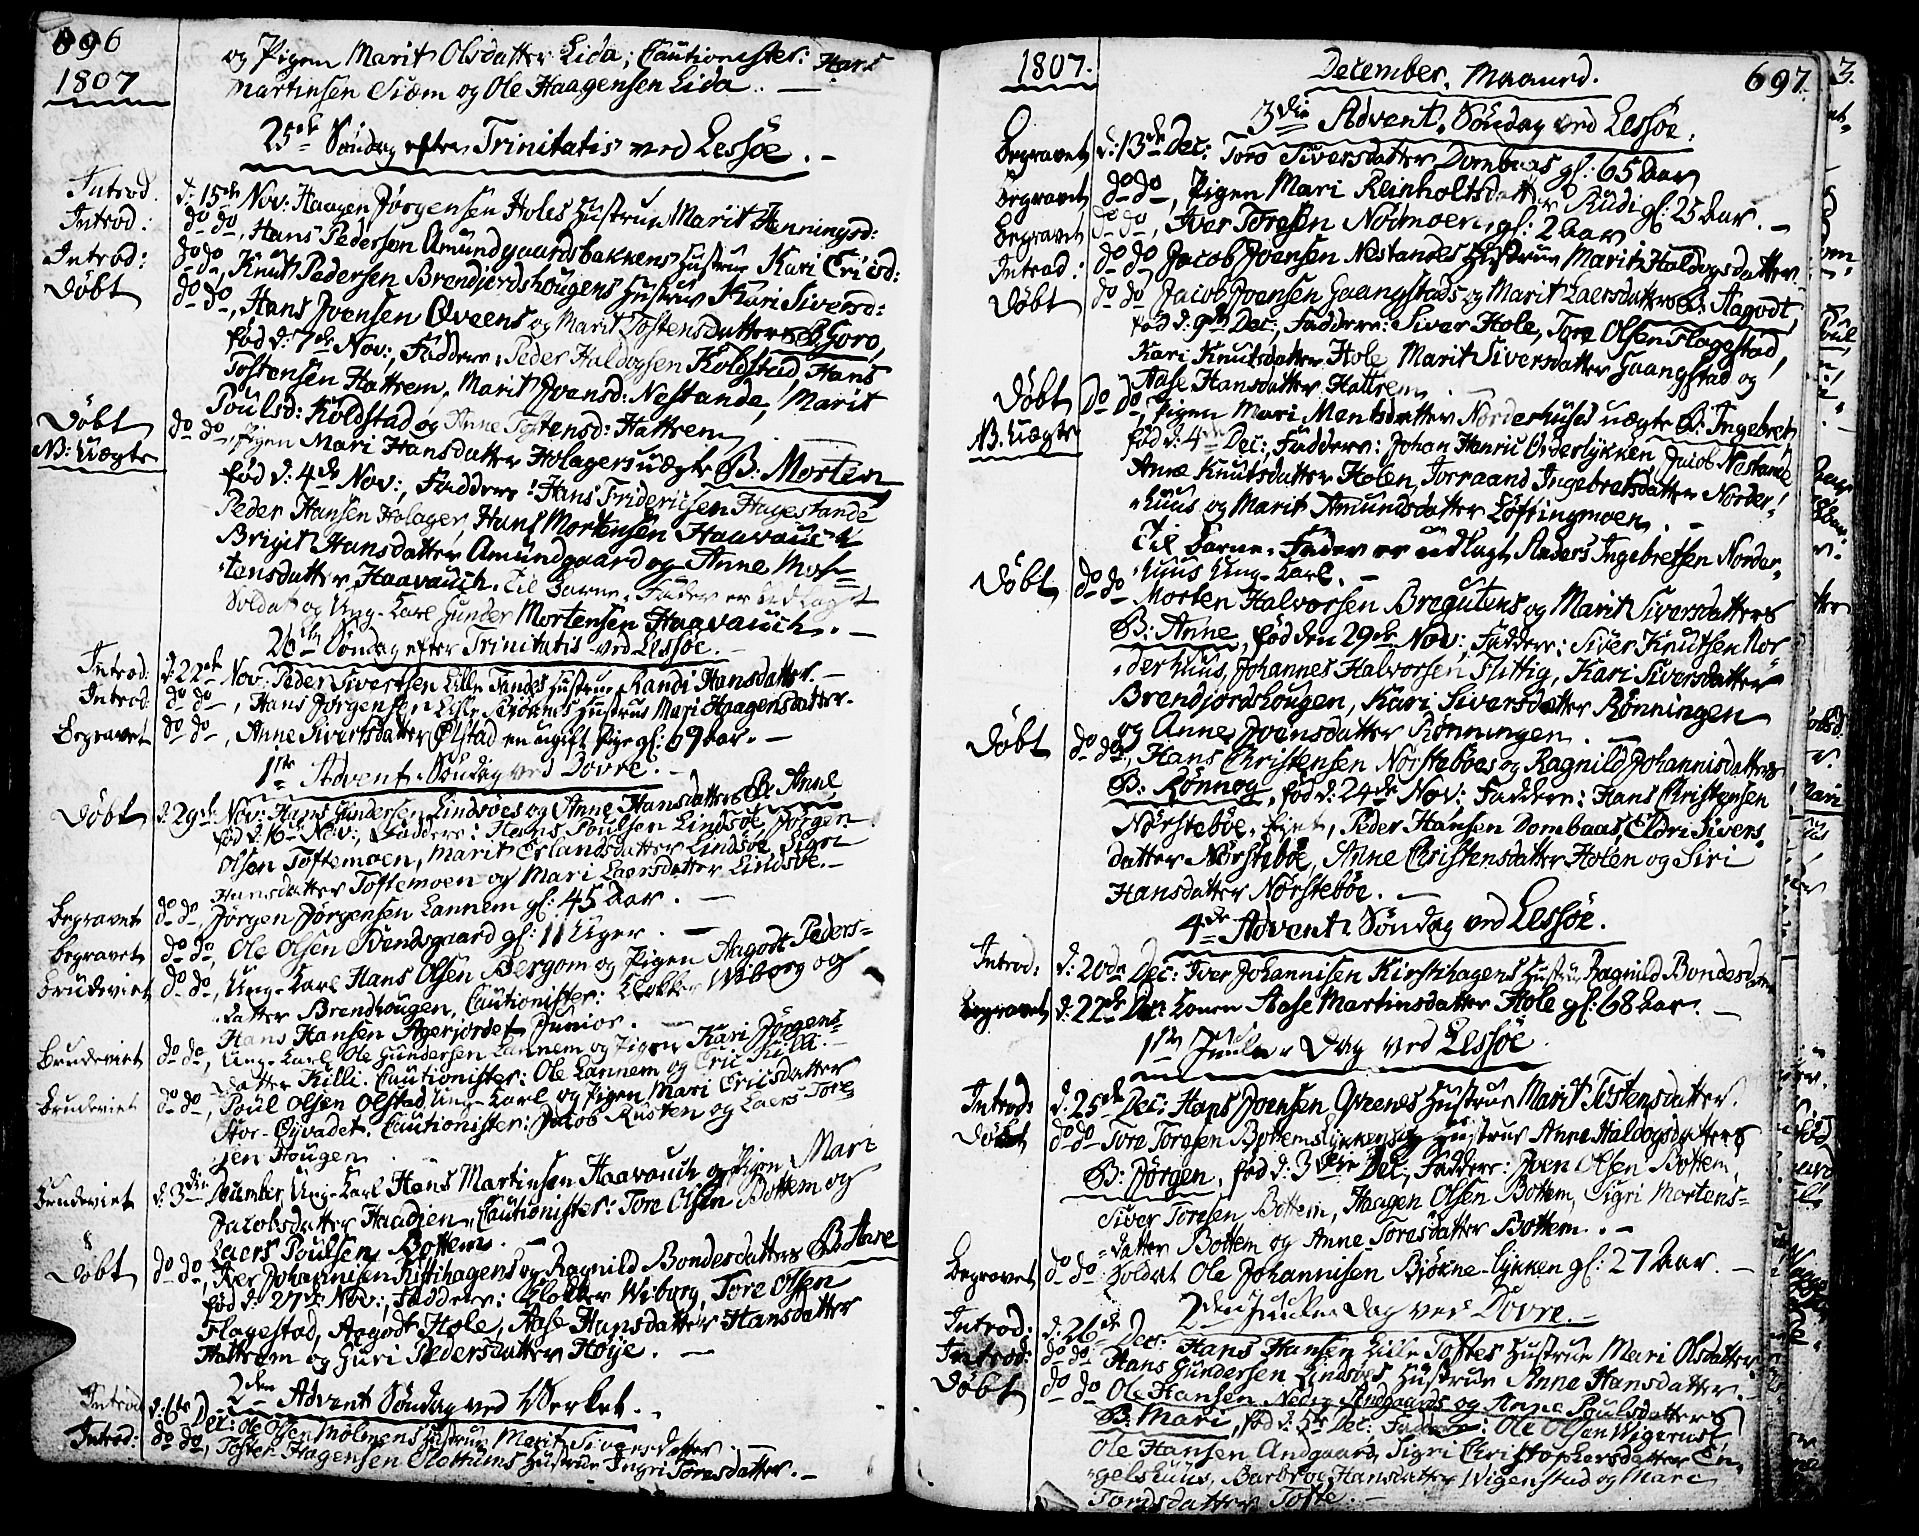 696
1807
og Pigen Marit Olsdatter Lida, Cautionister: Hans
Martinsen Siem og Ole Haagensen Lida. —
25de Søndag efter Trinitatis ved Lessøe. —
Introd. d: 15de Nov: Haagen Jørgensen Holes Hustrue Marit Henningsd:
Introd: do do, Hans Pedersen Amundgaardsbakkens Hustrue Kari Ericsd:
Introd: do do, Knut Pedersen Brendjordshougens Hustrue Kari Siversd:
Døbt do do, Hans Joensen Qveens og Marit Tostensdatters B: Goro,
fød d: 7de Nov:, Faddere: Peder Haldogsen Koldstad, Hans
Tostensen Hattrem, Marit Joensd: Nestande, Marit
Poulsd: Koldstad og Anne Tostensd: Hattrem.
Døbt do do, Pigen Mari Hansdatter Holagers uægte B: Morten
NB: Uægte fød d: 4de Nov:, Faddere: Hans Fridericsen Hagestande
Peder Hansen Holager, Hans Mortensen Haavauch
Brigit Hansdatter Amundgaard og Anne Mor-
tensdatter Haavauch. Til Barne-Fader er udlagt
Soldat og Ung-Karl Gunder Mortensen Haavauch. —
26de Søndag efter Trinitatis ved Lessøe. —
Introd. d: 22de Nov: Peder Sivertsen Lille Tandes Hustrue Randi Hansdatter. —
Introd: do do, Hans Jørgensen Lille Hustrue Mari Haagensdatter.
Begravet do do, Anne Sivertsdatter Ølstad en ugift Pige gl: 69 Aar. —
1ste Advent-Søndag ved Dovre. —
Døbt d: 29de Nov: Hans Gundersen Lindsøes og Anne Hansdatters B: Anne
fød d: 16de Nov:, Faddere: Hans Poulsen Lindsøe, Jørgen
Olsen Toftemoen, Marit Erlandsdatter Lindsøe, Sigri
Hansdatter Toftemoen og Mari Laersdatter Lindsøe. —
Begravet do do, Jørgen Jørgensen Lannem gl: 45 Aar. —
Begravet do do, Ole Olsen Svendsgaard gl: 11 Uger. —
Brudeviet do do, Ung-Karl Hans Olsen Bergom og Pigen Aagodt Peders-
datter Brendhougen, Cautionister: Klokker Wiborg og
Hans Hansen Agerjordet Junior. —
Brudeviet do do, Ung-Karl Ole Gundersen Lannem og Pigen Kari Jørgens-
datter Killi. Cautionister: Ole Lannem og Eric Killi. —
Brudeviet do do, Poul Olsen Olstad Ung-Karl og Pigen Mari Ericsdatter
Stor-Oyvadet. Cautionister: Jacob Rusten og Laers Tore
sen Hougen.
Brudeviet d: 3die December, Ung-Karl Hans Martinsen Haavauch og Pigen Mari
Jacobsdatter Haadien, Cautionister: Tore Olsen Bottem og
Laers Poulsen Bottem. —
Døbt do do, Iver Johannisen Kirstihagens og Ragnild Bondesdatters B: Hane
fød d: 27de Nov:, Faddere: Klokker Wiborg, Tore Olsen
Flagestad, Aagodt Hole, Aase Hansdatter Hansdatter
Hattrem og Guri Pedersdatter Høye. —
2den Advent Søndag ved Werket. —
Introd d: 6te Dec: Ole Olsen Mølmens Hustrue Marit Siversdatter. —
Introd: do do, Tosten Hagensen Slottums Hustrue Ingri Toresdatter. —
1807.
December Maaned.
697.
3die Advent-Søndag ved Lessøe:
Begravet d: 13de Dec: Toro Siversdatter Dombaas gl: 65 Aar
Begravet do do, Pigen Mari Reinholtsdatter Rudi gl: 25 Aar. —
Begravet do do, Iver Toresen Nordmoen, gl: 2 Aar
Introd: do do Jacob Joensen Nestandes Hustrue Marit Haldogsdatter
Døbt do do Jacob Joensen Gaangstads og Marit Laersdatters B: Aagodt,
fød d: 9de Dec:, Faddere: Siver Hole, Tore Olsen Flagestad,
Kari Knutsdatter Hole, Marit Siversdatter Gaangstad og
Aase Hansdatter Hattrem. —
Døbt do do, Pigen Mari Mentsdatter Norderhuses uægte B: Ingebret,
NB. Uægte fød d: 4de Dec:, Faddere: Johan Henric Orderlykken, Jacob Nestande
Anne Knutsdatter Holen, Jorraand Ingebretsdatter Norder-
huus og Marit Amundsdatter Løftingmoen. —
Til Barne-Fader er udlagt Anders Ingebretsen Norder-
huus Ung-Karl. —
Døbt do do Morten Halvorsen Bregutens og Marit Siversdatters
B: Anne, fød den 29de Nov:, Faddere: Siver Knutsen Nor
derhuus, Johannes Halvorsen Flittig, Kari Siversdatter
Brendjordshougen, Kari Siversdatter Rønningen
og Anne Joensdatter Rønningen. —
Døbt do do, Hans Christensen Nørstebøes og Ragnild Johannisdatters
B: Rønnog, fød d: 24de Nov: Faddere: Hans Christensen
Nørstebøe, Peder Hansen Dombaas, Eldri Sivers-
datter Nørstebøe, Anne Christensdatter Holen og Siri
Hansdatter Nørstebøe. —
4de Advent Søndag ved Lessøe.
Introd: d: 20de Dec: Iver Johannisen Kirstihagens Hustrue Ragnild Bondesdatter
Begravet d: 22de Dec: Konen Aase Martinsdatter Hole gl: 68 Aar. —
1ste Juule-Dag ved Lessøe
Introd: d: 25de Dec: Hans Joensen Qveenes Hustrue Marit Tostensdatter.
Døbt do do Tore Toresen Bottemslykkens og Hustrue Anne Haldogsdatters
B: Jørgen, fød d: 3die Dec:, Faddere: Joen Olsen Bottem,
Siver Toresen Bottem, Haagen Olsen Bottem, Sigri Mortens-
datter Bottem og Anne Toresdatter Bottem. —
Begravet do do Soldat Ole Johannisen Bjøkne-lykken gl: 27 Aar. —
2den Juule Dag ved Dovre. —
Introd: d: 26de Dec: Hans Hansen Lille Toftes Hustrue Mari Olsdatter
Introd: do do Hans Gundersen Lindsøes Hustrue Anne Hansdatter.
Døbt do do Ole Hansen Nedre Andgaards og Anne Poulsdatters
B: Mari, fød d: 5te Dec: Faddere: Ole Olsen Wigerust
Ole Hansen Andgaard, Sigri Christophersdatter En-
gelshuus, Barbroe Hansdatter Wigenstad og Mari
Tordsdatter Tofte. —